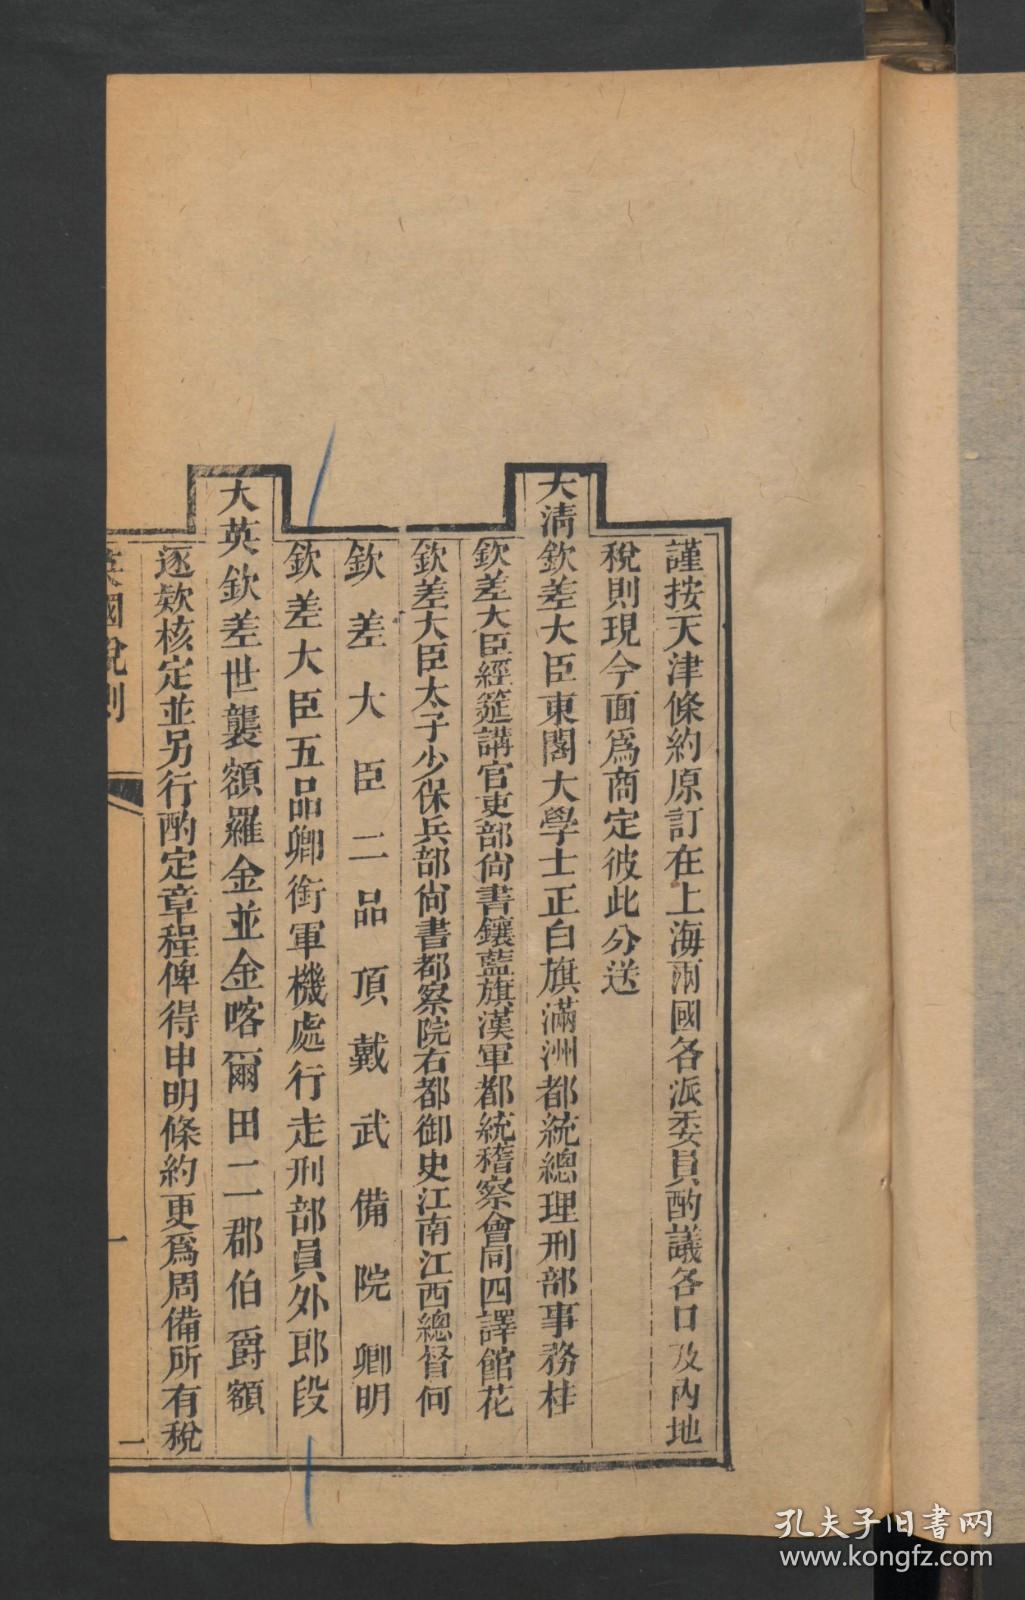 謹按天津條約原訂在上海兩國各派委員酌議各口及內地
稅則現今面爲商定彼此分送
大清欽差大臣東閣大學士正白旗滿洲都統總理刑部事務桂
欽差大臣經筵講官吏部尙書鑲藍旗漢軍都統稽察會同四譯館花
欽差大臣太子少保兵部尙書都察院右都御史江南江西總督何
欽差大臣二品頂戴武備院卿明
欽差大臣五品卿銜軍機處行走刑部員外郎段
大英欽差世襲額羅金並金喀爾田二郡伯爵額
逐款核定並另行酌定章程俾得申明條約更爲周備所有稅
英國稅則
一
一
孔夫子旧書网
www.kongfz.com